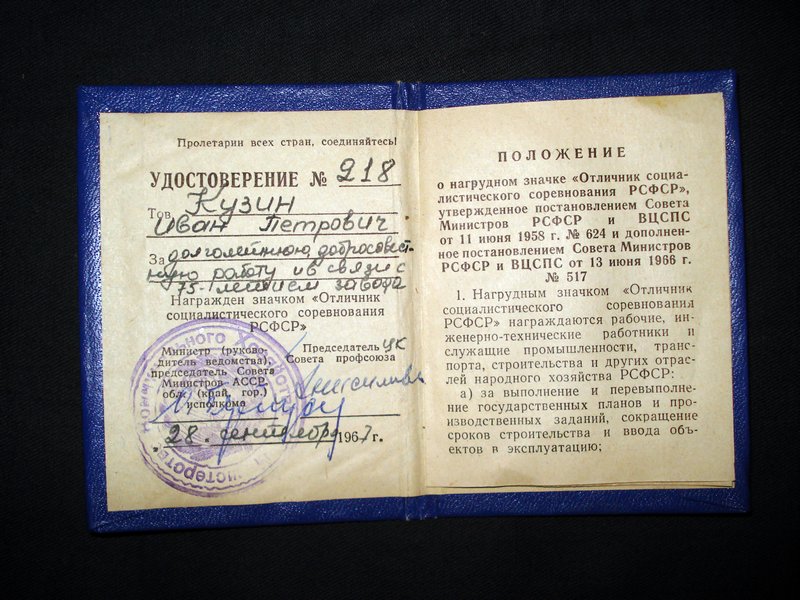 Пролетарии всех стран, соединяйтесь!
УДОСТОВЕРЕНИЕ № 218
Тов. Кузин
Иван Петрович
За долголетнюю, добросовест-
ную работу и в связи с
75-летием завода
Награжден значком «Отличник
социалистического соревнования
РСФСР»
Министр (руково-
дитель ведомства),
председатель Совета
Министров АССР,
обл. (край, гор.)
исполкома
Председатель ЦК
Совета профсоюза
28. сентября 1967 г.
ПОЛОЖЕНИЕ
о нагрудном значке «Отличник социа-
листического соревнования РСФСР»,
утвержденное постановлением Совета
Министров РСФСР и ВЦСПС
от 11 июня 1958 г. № 624 и дополнен-
ное постановлением Совета Министров
РСФСР и ВЦСПС от 13 июня 1966 г.
№ 517
1. Нагрудным значком «Отличник
социалистического соревнования
РСФСР» награждаются рабочие, ин-
женерно-технические работники и
служащие промышленности, транс-
порта, строительства и других отрас-
лей народного хозяйства РСФСР:
а) за выполнение и перевыполне-
ние государственных планов и про-
изводственных заданий, сокращение
сроков строительства и ввода объ-
ектов в эксплуатацию;